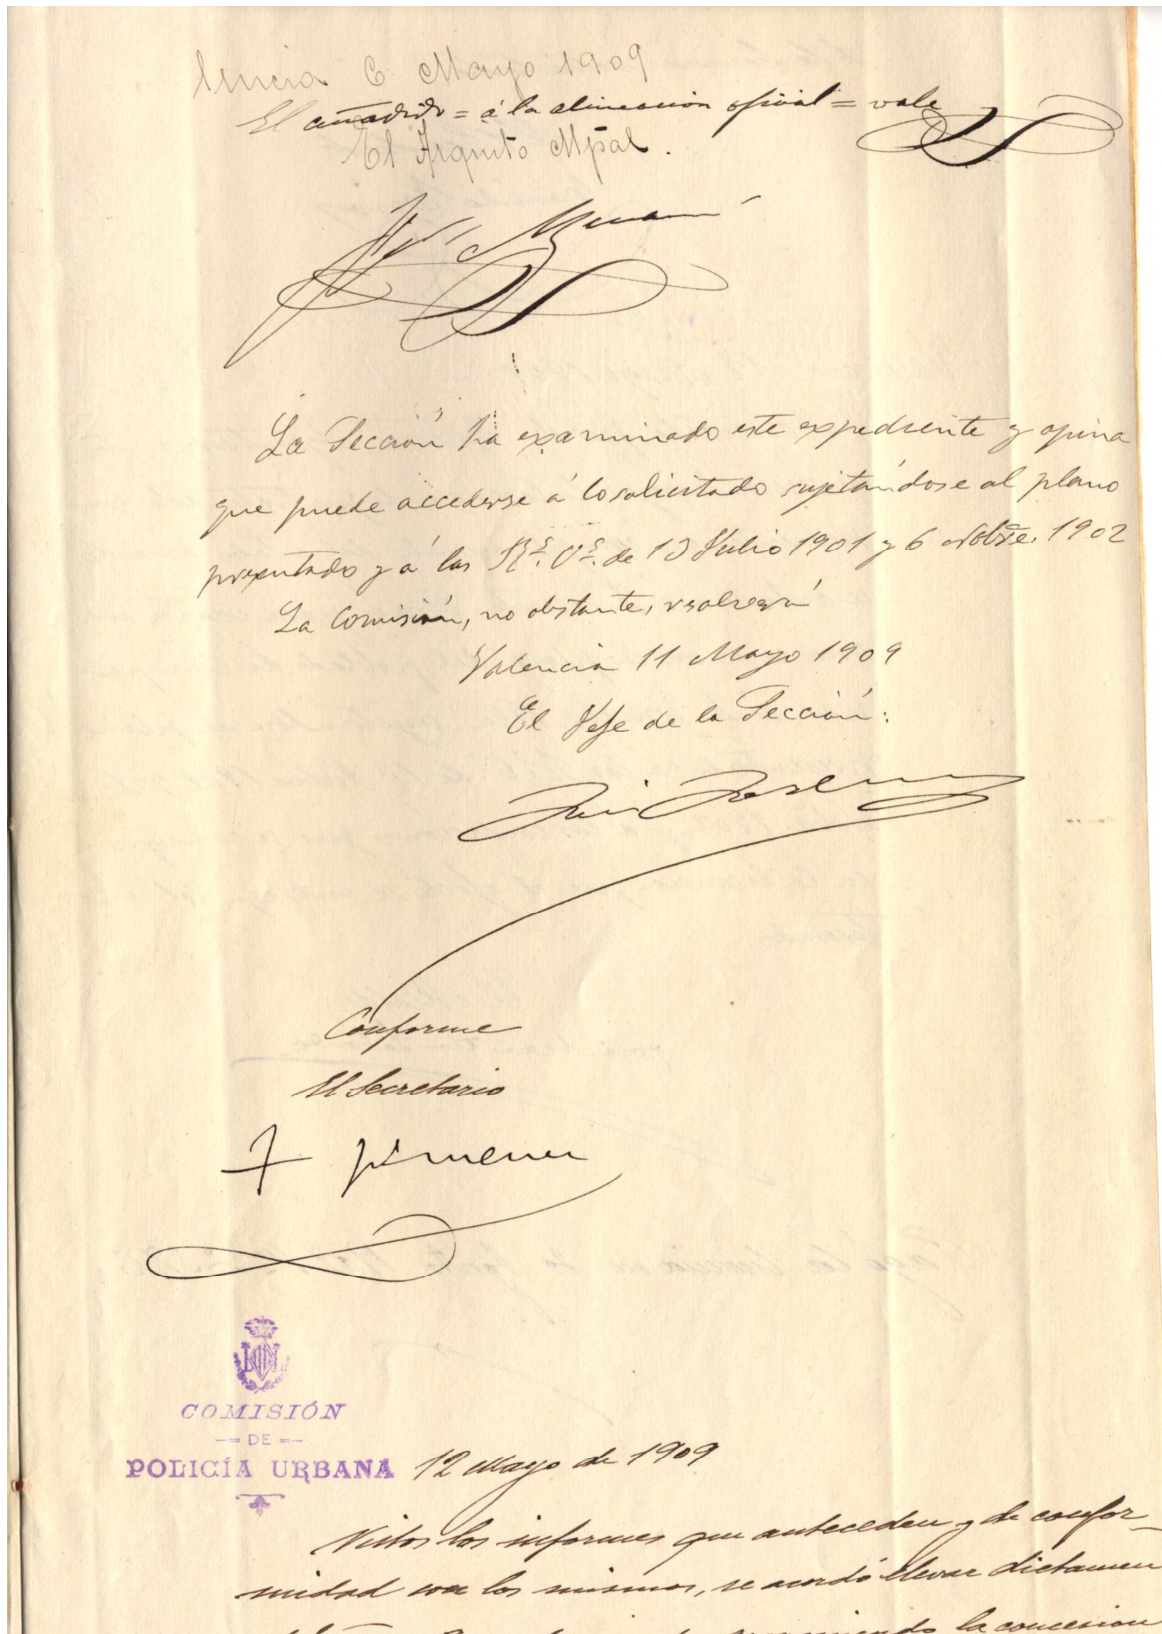 lencia 6 Mayo 1909
El añadido = á la alineación oficial = vale
El Arquito Mpal.
La Sección ha examinado este expediente y opina
que puede accederse á lo solicitado sujetándose al plano
presentado y á las Rs. Os. de 13 Julio 1901 y 6 Nobre. 1902
La Comisión, no obstante, resolverá
Valencia 11 Mayo 1909
El Jefe de la Sección:
Conforme
El Secretario
F Jimenez
COMISIÓN
DE
POLICÍA URBANA 12 Mayo de 1909
Vistos los informes que anteceden y de confor-
midad con los mismos, se acordó elevar dictamen
la concesion